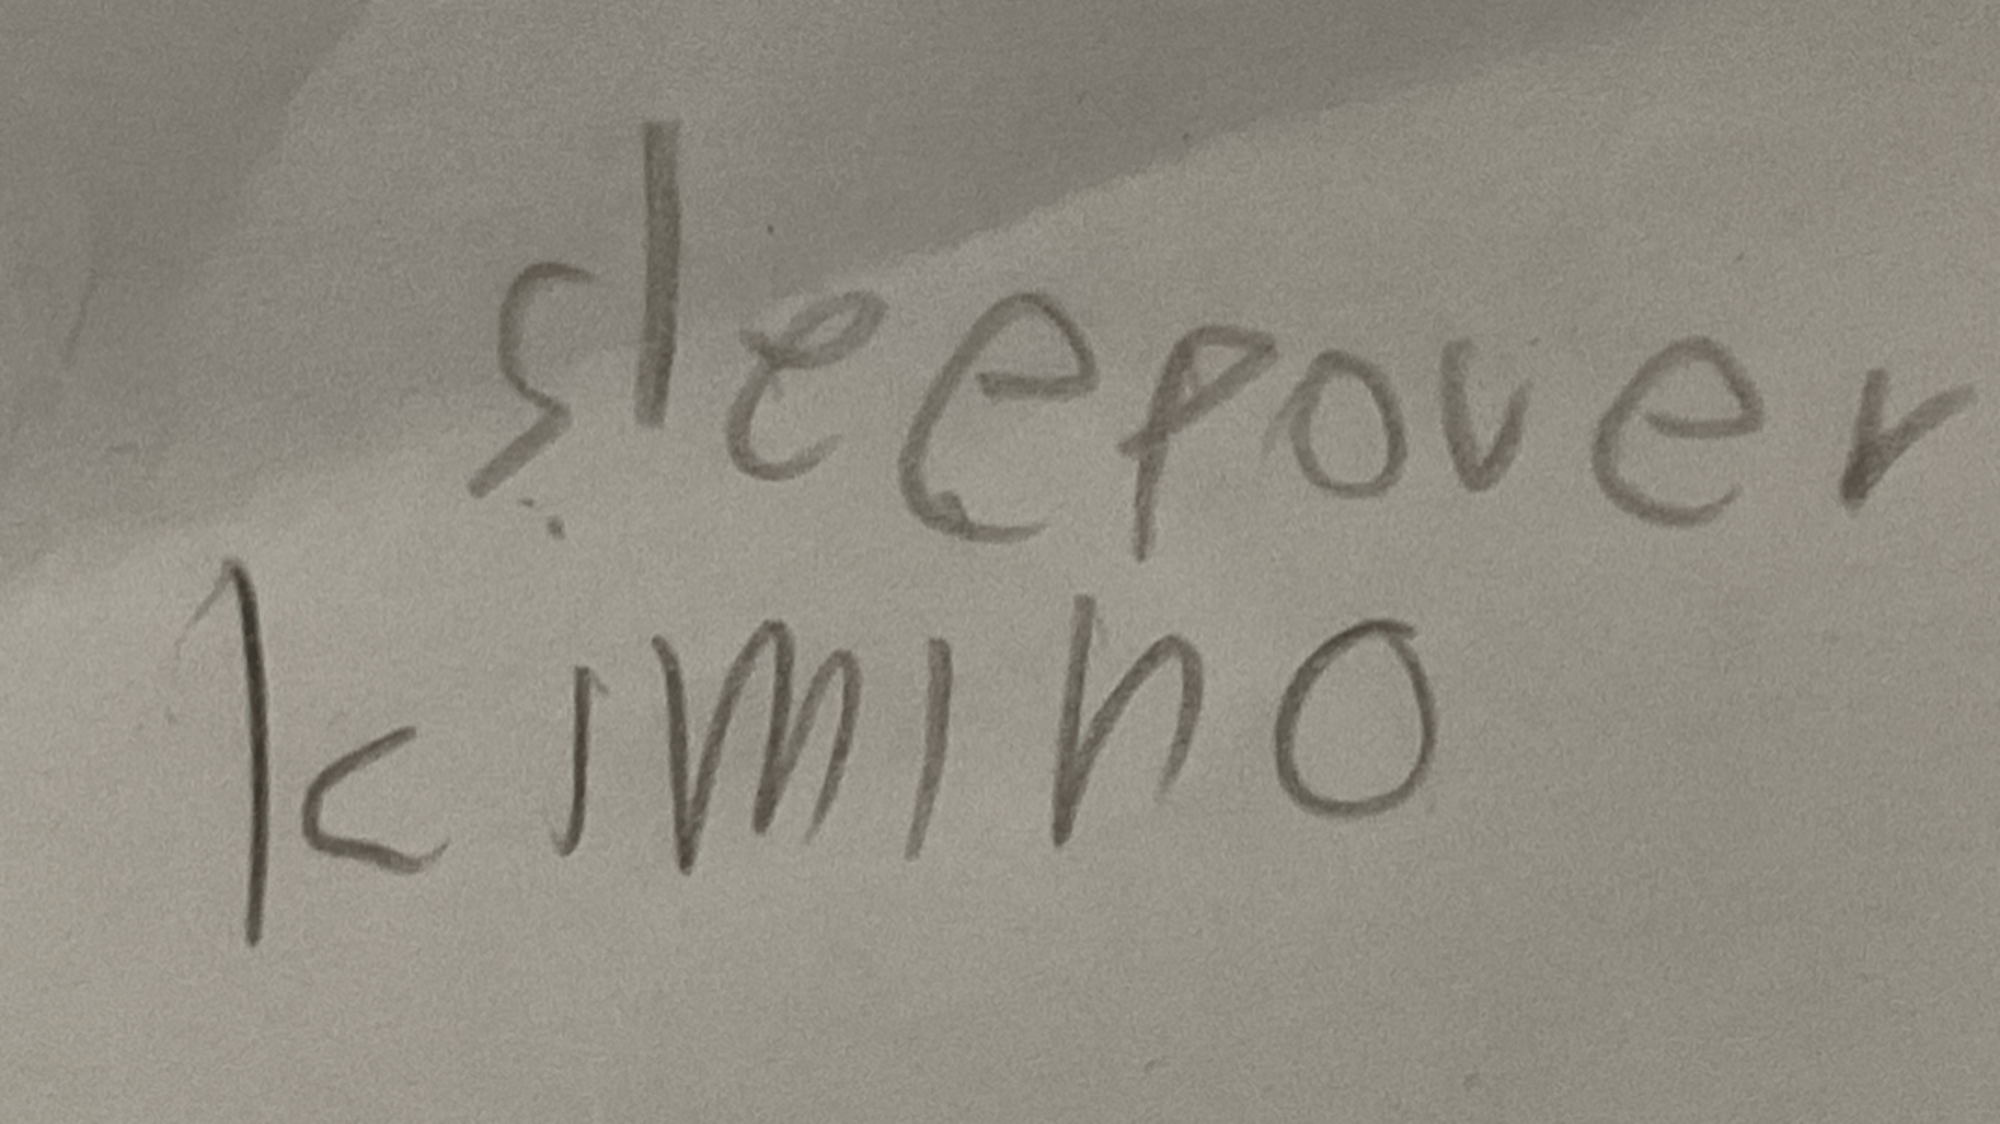 sleepover
kimino